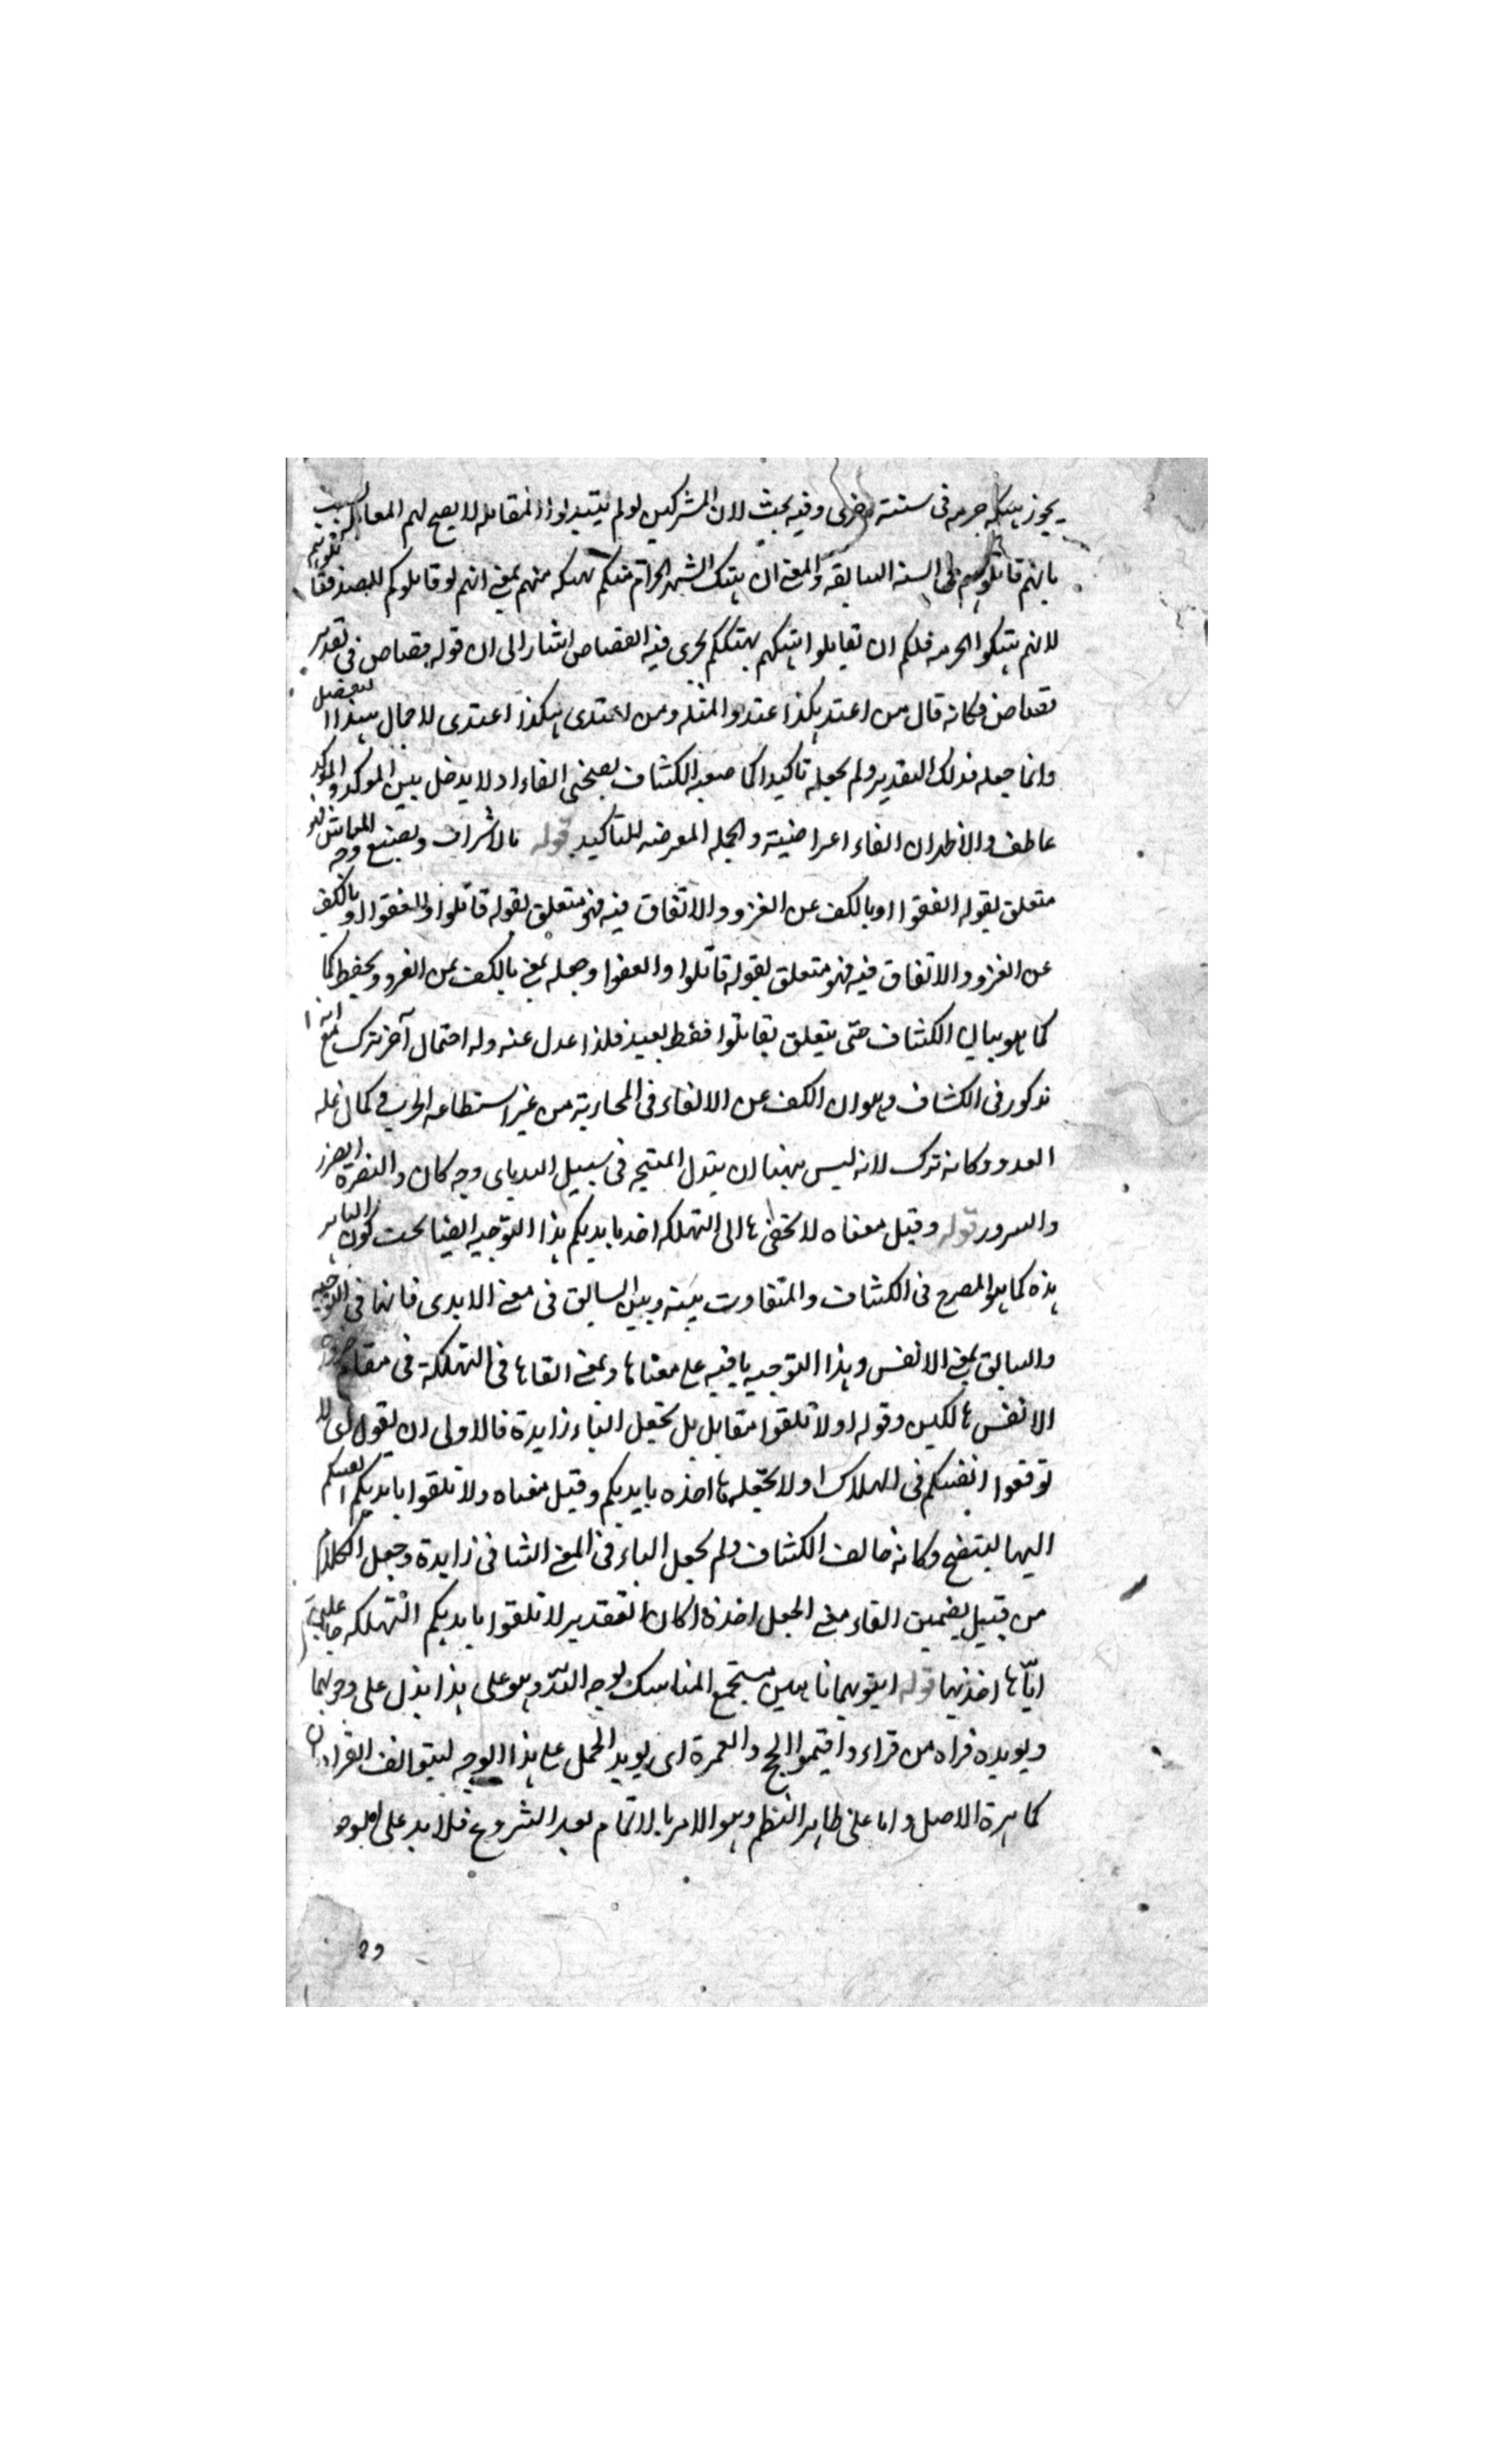 يجوز هتكه حرمه فى سنته اخرى وفيه بحث لان المشركين لو لم يبتدءوا المقاتله لا يصح لهم
بانهم قاتلوهم فى السنه السابقه والمعنى ان هتك الشهر الحرام منكم بهتكه منهم بمعنى انهم لو قاتلوكم
لانهم هتكوا الحرمه فلكم ان تقابلوا هتكهم بهتككم يجرى فيه القصاص اشار الى ان قوله قصاص فى تقدير
قصاص فكانه قال من اعتد بكذا اعتدوا لمثله ومن اعتدى بكذا اعتدى لاجمال بهذا التفصيل
وانما جعله فذلك التقدير ولم يجعله تاكيدا كما صنعه الكشاف الفاء اذ لا يدخل بين الموكد والموكد
عاطف والاظهر ان الفاء اعتراضيته والجمله المعترضه للتاكيد قوله بالاسراف وتضييع وجه المعاش
متعلق بقوله انفقوا او بالكف عن الغزو والانفاق فيه فهو متعلق بقوله قاتلوا وانفقوا وبالكف
عن الغزو والانفاق فيه فهو متعلق بقوله قاتلوا وانفقوا وجعله بمعنى بالكف عن الغزو
كما هو بيان الكشاف حتى يتعلق بقاتلوا فقط بعيد فلذا عدل عنه وله احتمال آخر ترك مع انه
مذكور فى الكشاف وهو ان الكف عن الالقاء فى المحاربة من غير استطاعه الحرب و كمال غلبه
العدو وكانه ترك لانه ليس نهينا ان يبذل المهجه فى سبيل الله باى وجه كان والنصرة
والسرور قوله وقيل معناه لا تجعلوها الى التهلكه اخذ بايديكم هذا التوجيه ايضا تحت كون الباء
هذه كما هو المصرح فى الكشاف والتفاوت بينه وبين السابق فى معنى الايدى فانها فى التوجيه
والسابق بمعنى الانفس وهذا التوجيه باقيه على معناها وبمعنى القاها فى التهلكة فى مقام
الانفس هالكين وقوله او لا تلقوا مقابل بل تجعل الباء زايدة فالاولى ان يقول اى لا
توقعوا انفسكم فى الهلاك او لا تجعلوها اخذه بايديكم وقيل معناه ولا تلقوا بايديكم انفسكم
اليها ليتضح وكانه خالف الكشاف ولم يجعل الباء فى المعنى الثانى زايدة وجعل الكلام
من قبيل تضمين القاء معنى الجعل اخذه اذ كان التقدير لا تلقوا بايديكم التهلكه جاعلين
ايّاها اخذتها قوله ايتوبهما تامين مستجمع المناسك لوجه الله وهو على هذا يدل على وجوبهما
ويويده قراه من قراء واقيموا الحج والعمرة اى يويد الحمل على هذا الوجه ليتوافق القراءتان
كما هرة الاصل واما على ظاهر النظم وهو الامر بالاتمام بعد الشروع فلا يد على الوجو